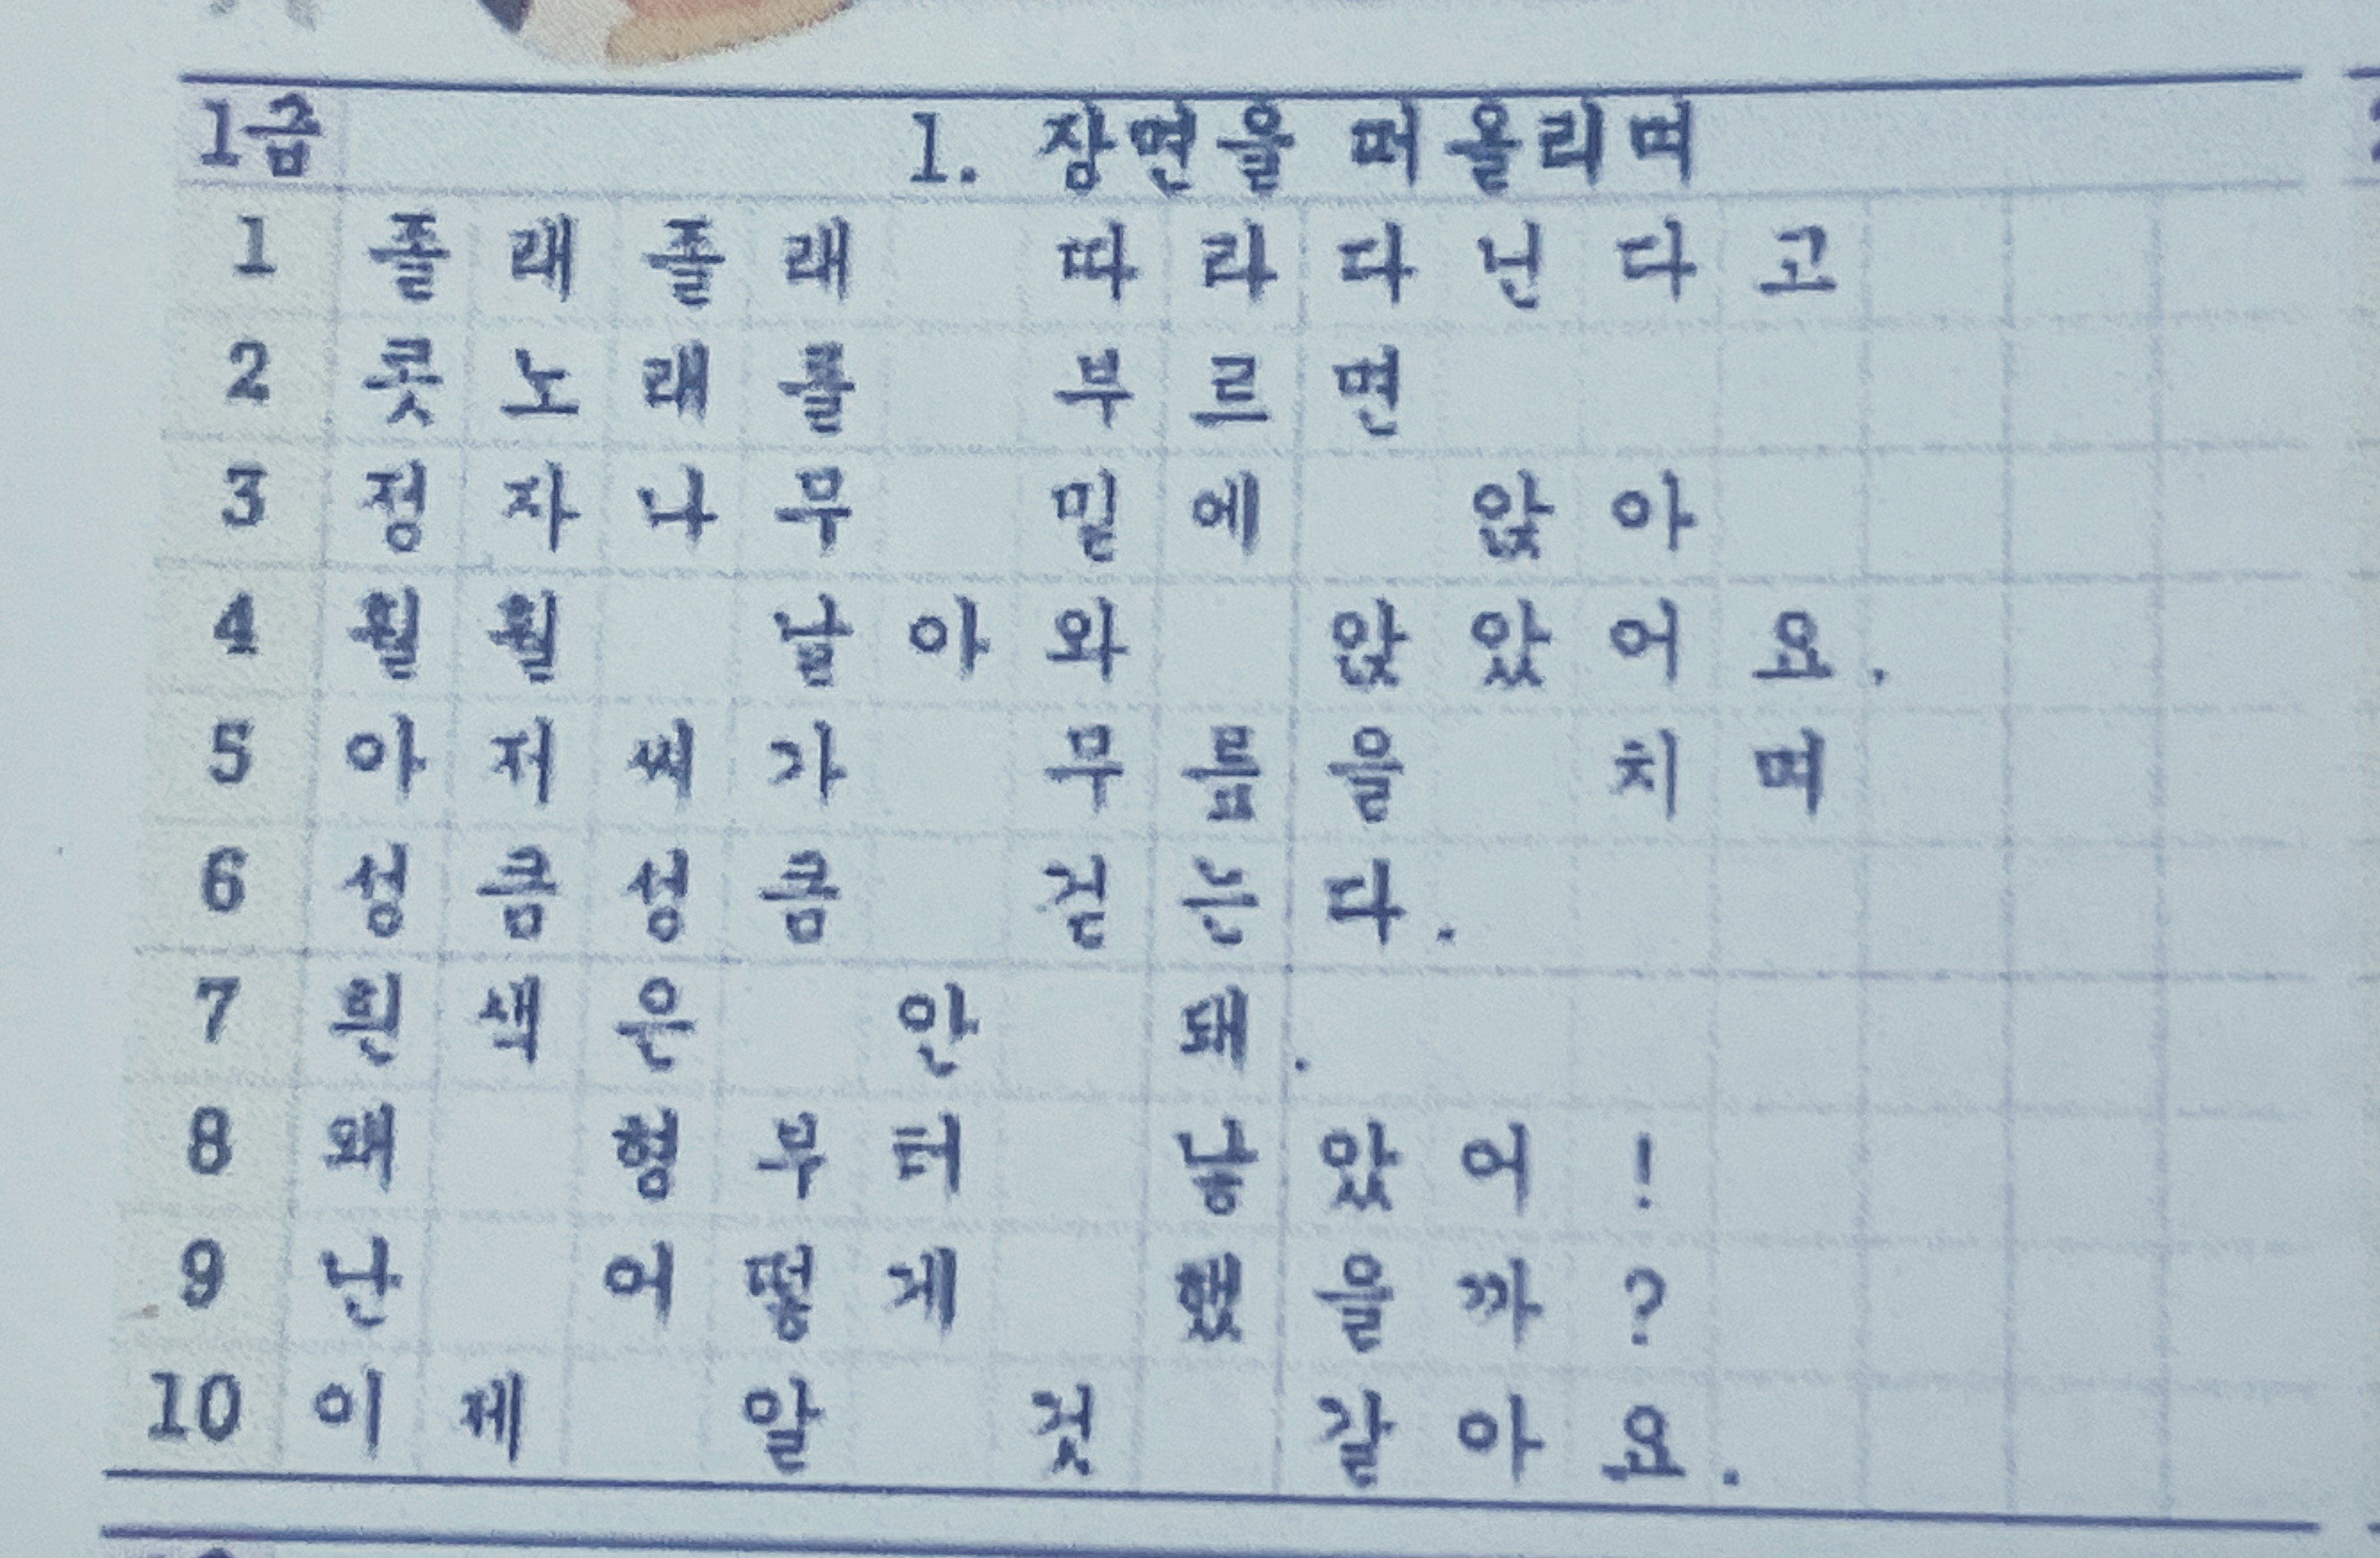 1급 1. 장면을 떠올리며
1 졸래졸래 따라다닌다고
2 콧노래를 부르면
3 정자나무 밑에 앉아
4 훨훨 날아와 앉았어요.
5 아저씨가 무릎을 치며
6 성큼성큼 걷는다.
7 흰색은 안 돼.
8 왜 형부터 낳았어!
9 난 어떻게 했을까?
10 이제 알 것 같아요.